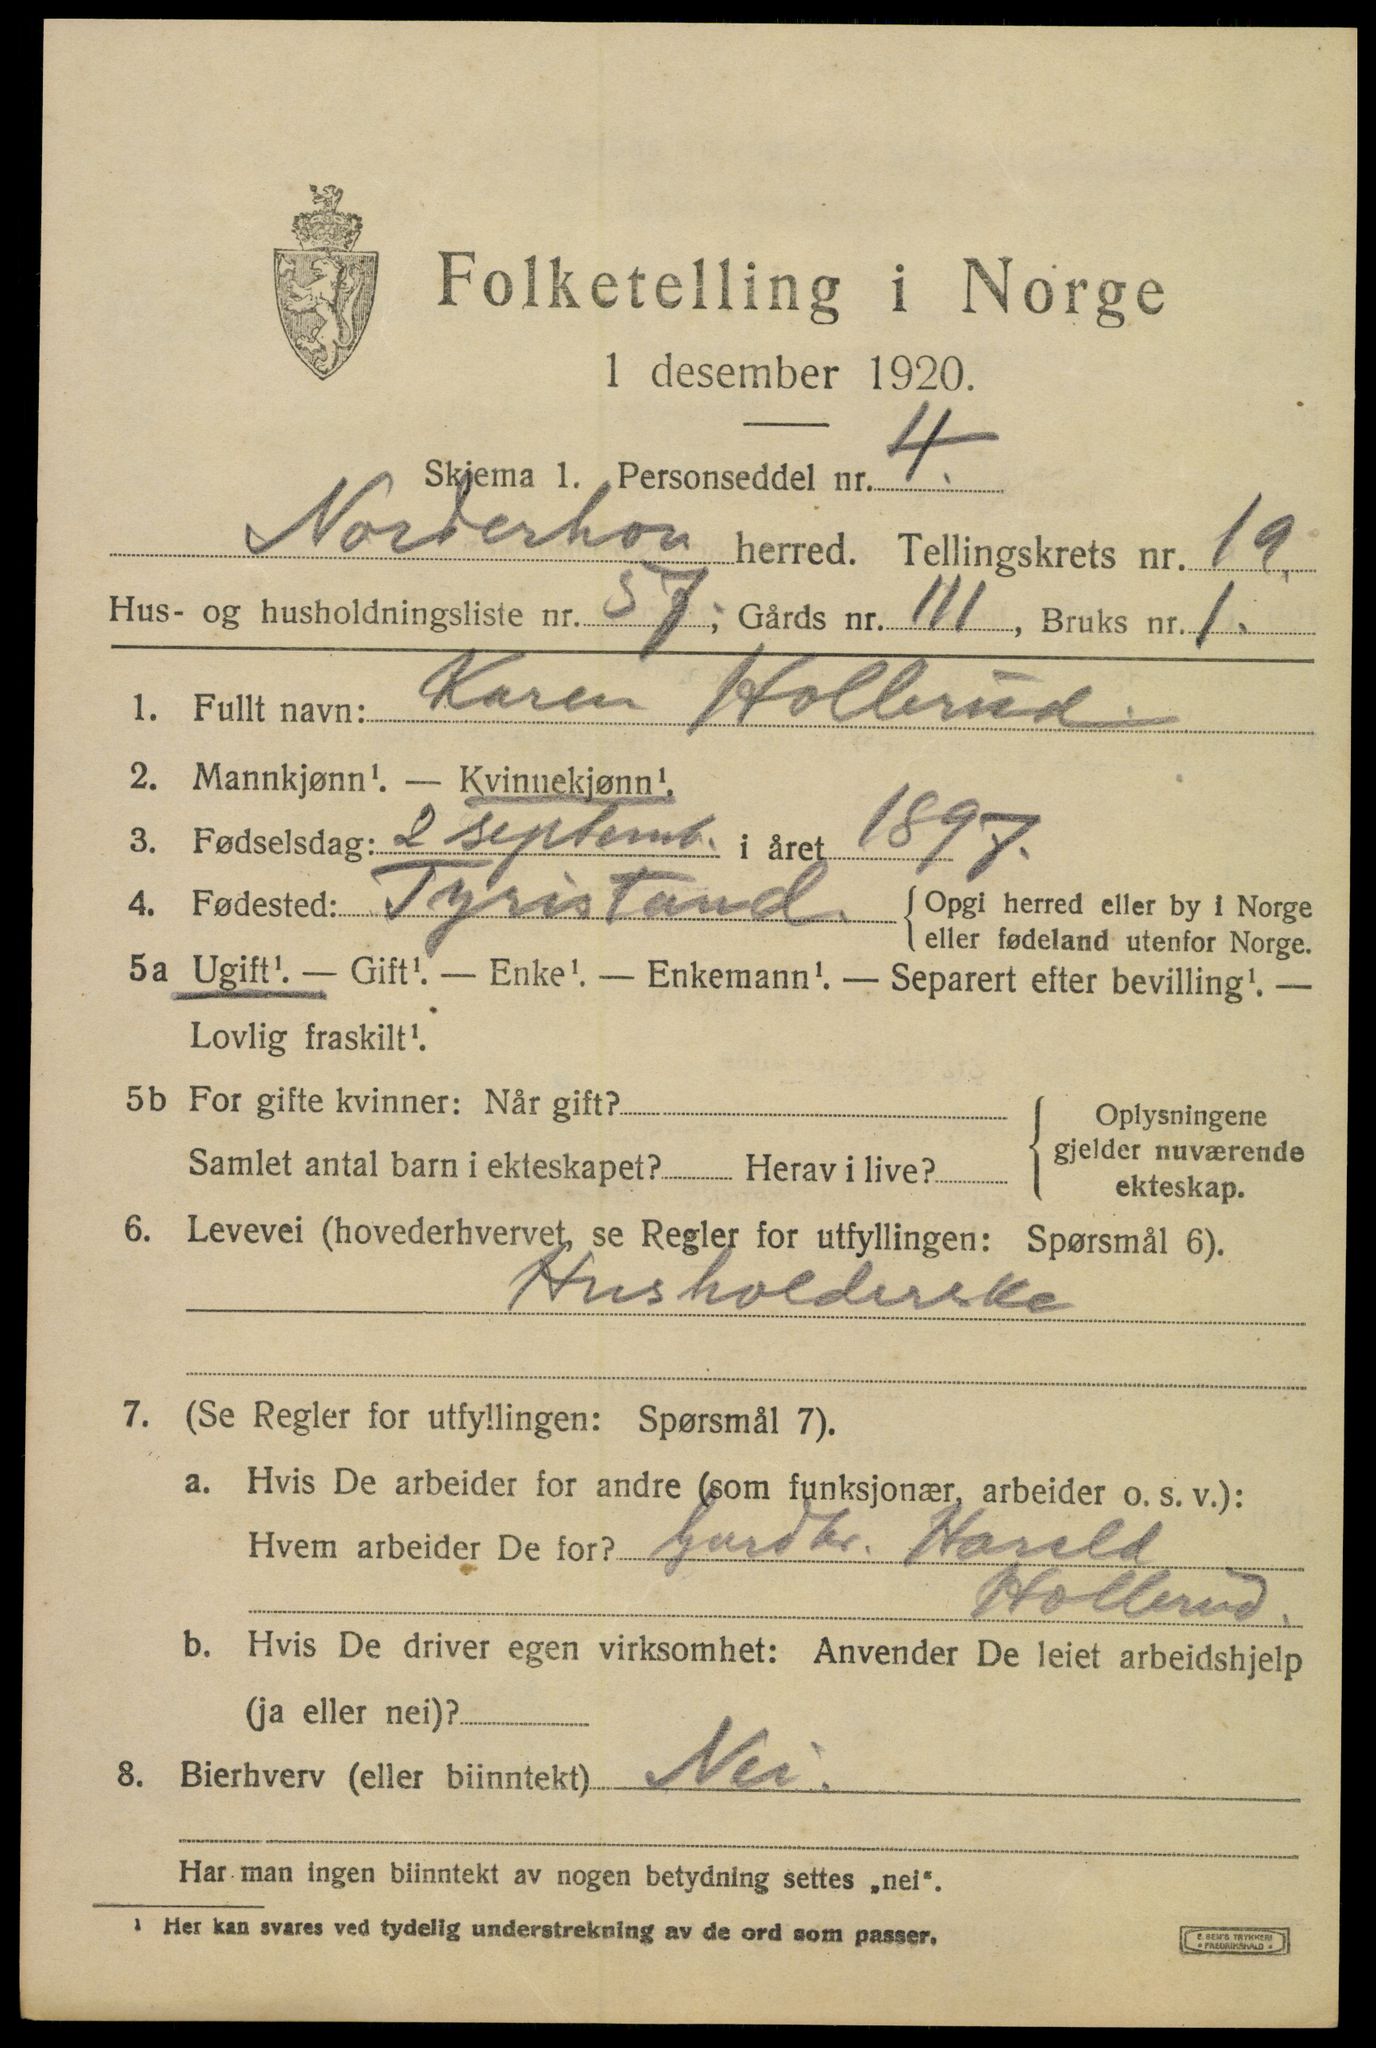 Folketelling i Norge
1 desember 1920.
Skjema 1. Personseddel nr. 4.
Norderhov herred. Tellingskrets nr. 19.
Hus- og husholdningsliste nr. 57; Gårds nr. 111, Bruks nr. 1.
1. Fullt navn: Karen Hollerud.
2. Mannkjønn¹. — Kvinnekjønn¹.
3. Fødselsdag: 2 septemb. i året 1897.
4. Fødested: Tyristrand. {Opgi herred eller by i Norge
eller fødeland utenfor Norge.
5a Ugift¹. — Gift¹. — Enke¹. — Enkemann¹. — Separert efter bevilling¹. —
Lovlig fraskilt¹.
5b For gifte kvinner: Når gift? { Oplysningene
gjelder nuværende
Samlet antal barn i ekteskapet? Herav i live?
ekteskap.
6. Levevei (hovederhvervet, se Regler for utfyllingen: Spørsmål 6).
Husholderske
7. (Se Regler for utfyllingen: Spørsmål 7).
a. Hvis De arbeider for andre (som funksjonær, arbeider o. s. v.):
Hvem arbeider De for? Gardbr. Harald
Hollerud.
b. Hvis De driver egen virksomhet: Anvender De leiet arbeidshjelp
(ja eller nei)?
8. Bierhverv (eller biinntekt) Nei.
Har man ingen biinntekt av nogen betydning settes „nei“.
¹ Her kan svares ved tydelig understrekning av de ord som passer.
E. SEM'S TRYKKERI
• FREDRIKSHALD •